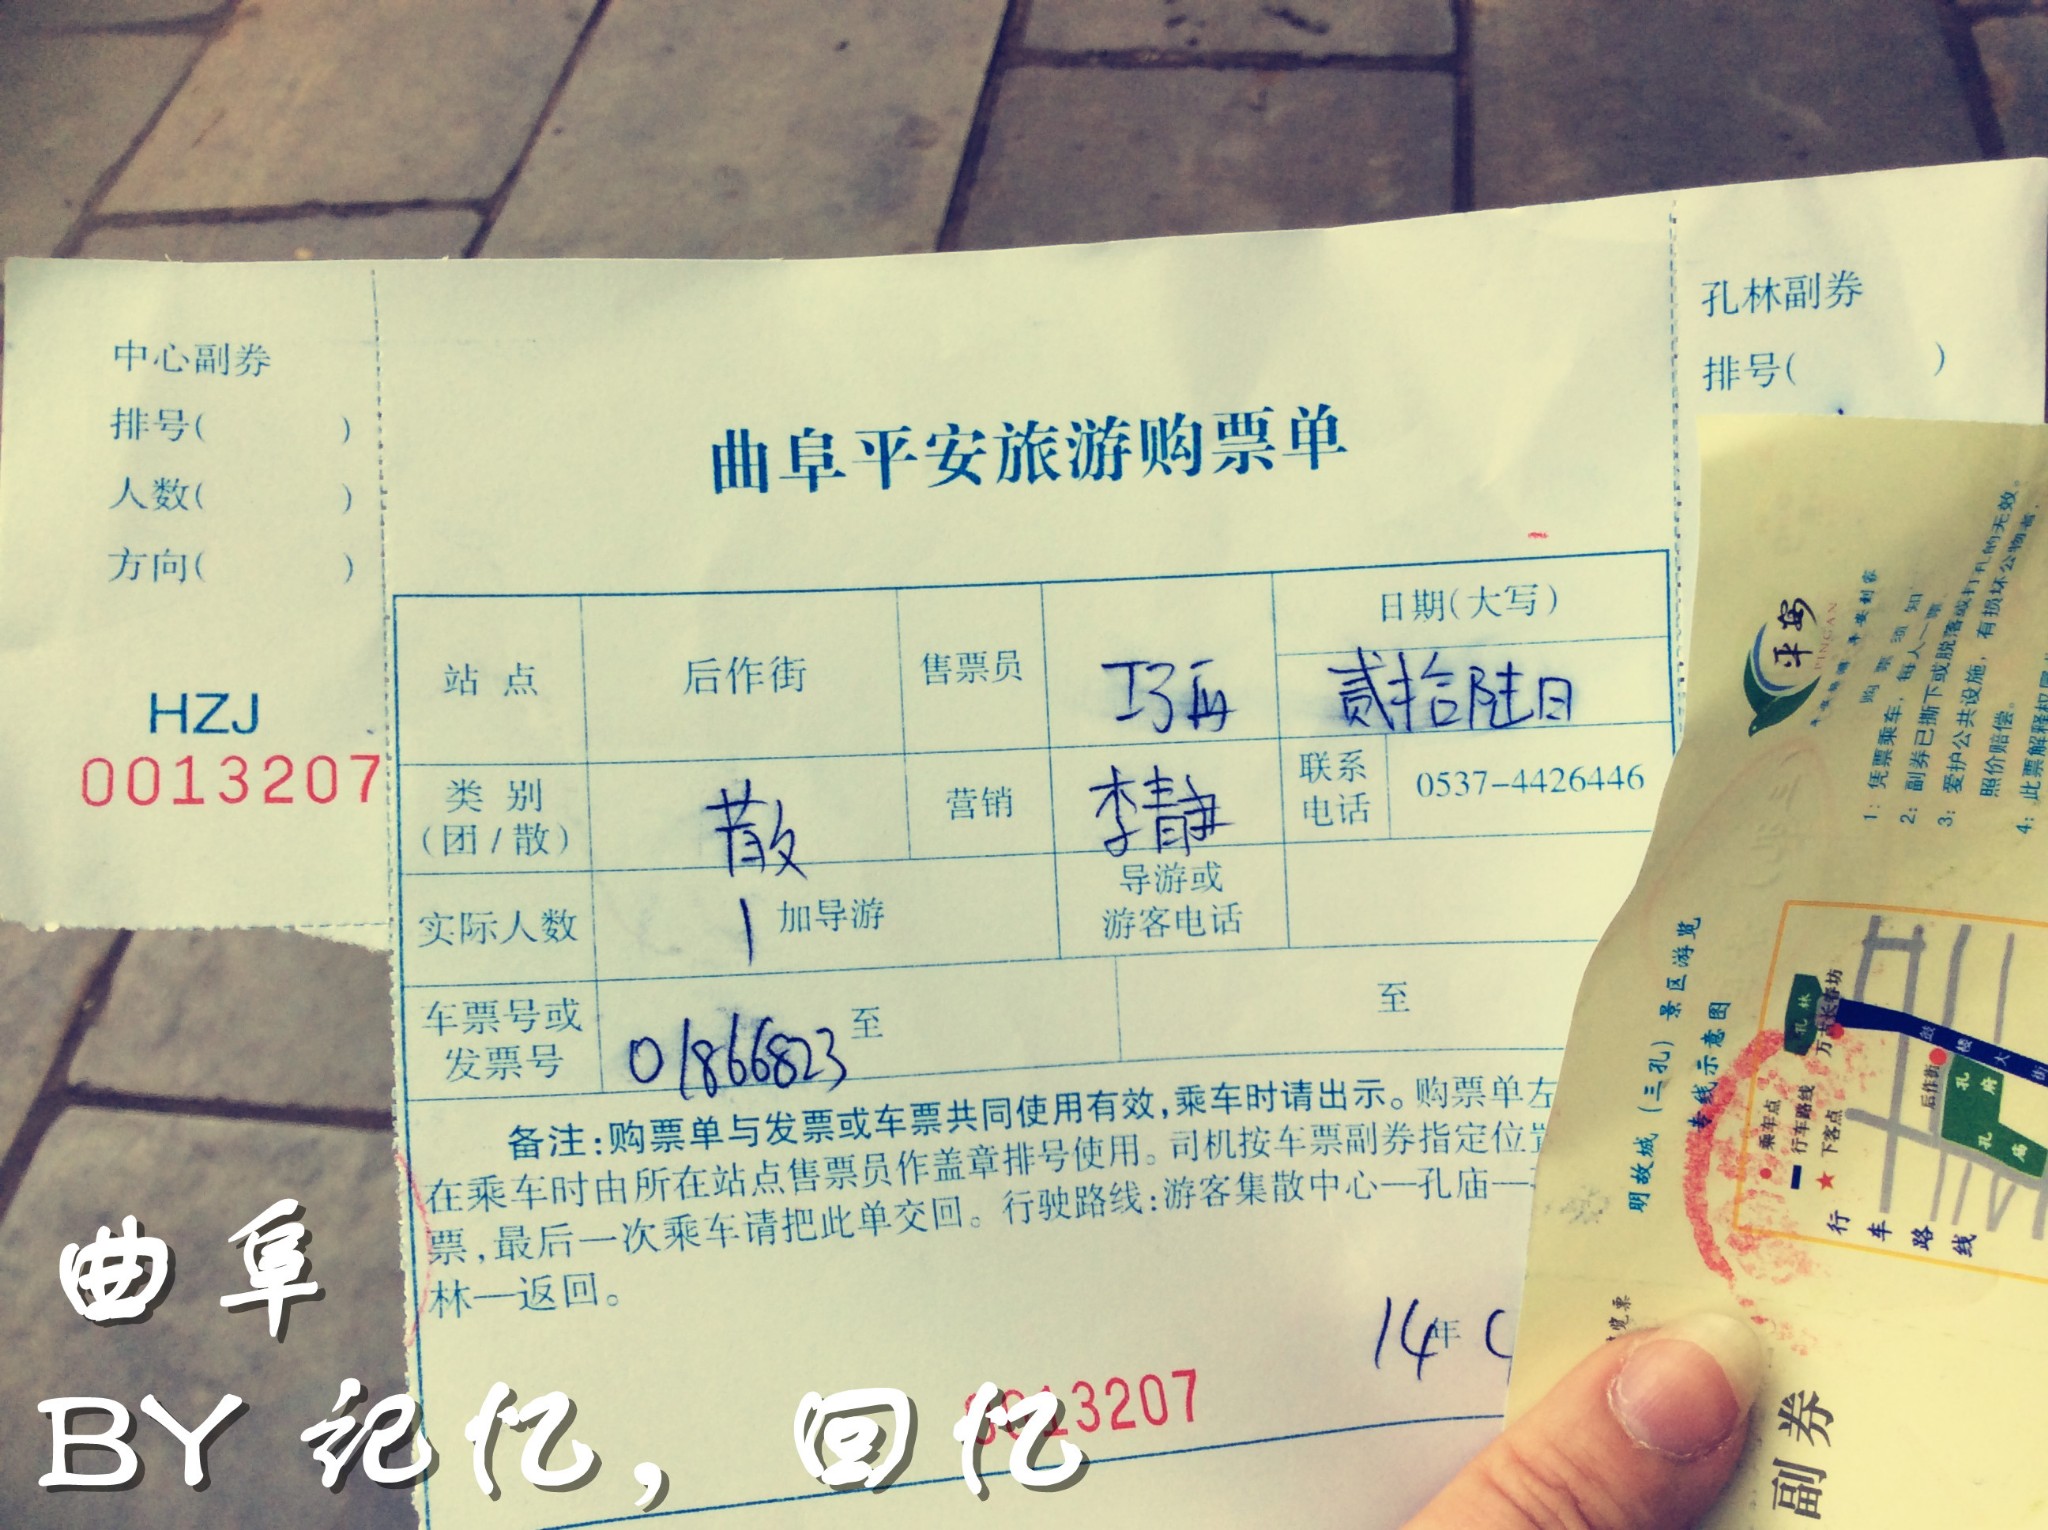 中心副券
排号(    )
人数(    )
方向(    )
HZJ
0013207
曲阜平安旅游购票单
孔林副券
排号(    )
站 点 后作街 售票员 日期(大写)
贰拾陆日
类 别
(团/散) 散 营销 李静 联系
电话 0537-4426446
实际人数 1 加导游 导游或
游客电话
车票号或
发票号 01866823 至 至
备注:购票单与发票或车票共同使用有效,乘车时请出示。购票单左
在乘车时由所在站点售票员作盖章排号使用。司机按车票副券指定位置
票,最后一次乘车请把此单交回。行驶路线:游客集散中心—孔庙—
林—返回。
14年
0013207
平安
PINGAN
购票须知
1: 凭票乘车,每人一票
2: 副券已撕下或脱落或打孔的无效。
3: 爱护公共设施,有损坏公物者,
照价赔偿。
4: 此票解释权属
明故城(三孔)景区游览
专线示意图
乘车点
行车路线
下客点
孔林
万古长春坊
鼓楼大街
后作街
孔府
孔庙
行车路线
览票
副券
曲阜
BY 记忆,回忆